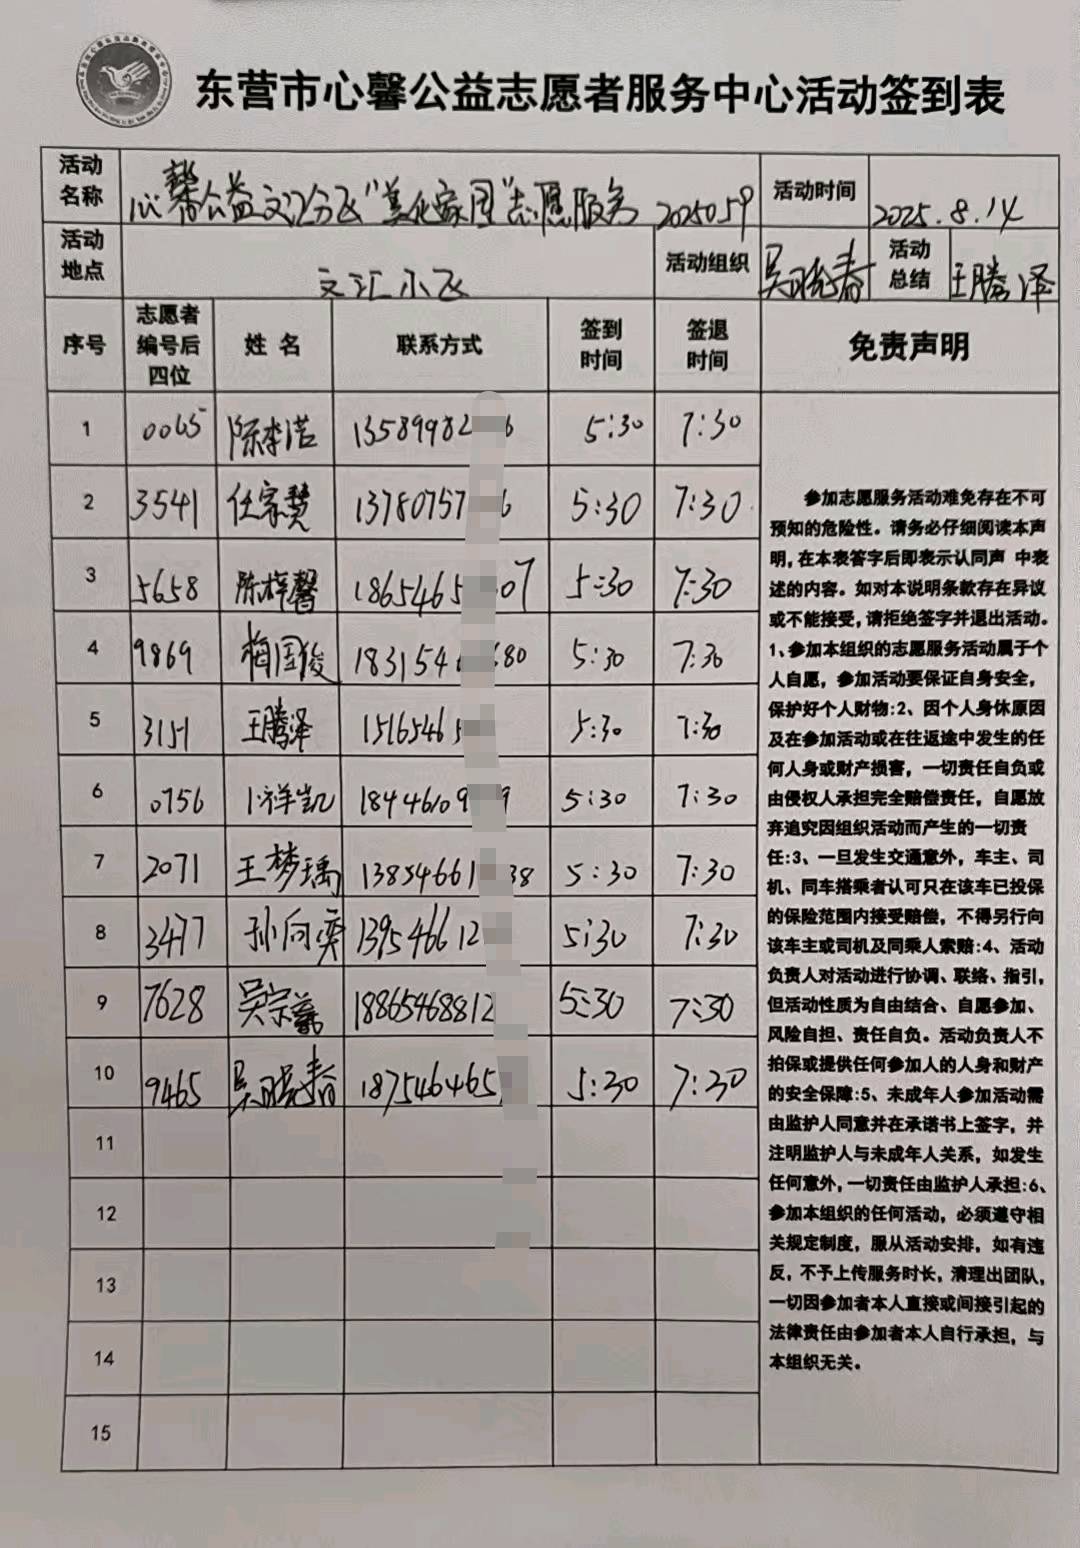 东营市心馨公益志愿者服务中心活动签到表
活动名称 心馨公益文汇分队"美化家园"志愿服务 2025059 活动时间 2025.8.14
活动地点 文汇小区 活动组织 吴晓春 活动总结 王腾泽
序号 志愿者编号后四位 姓名 联系方式 签到时间 签退时间 免责声明
1 0065 陈李浩 13589982 6 5:30 7:30
2 3541 任家慧 13780757 6 5:30 7:30
3 5658 陈梓馨 18654465 07 5:30 7:30
4 9869 梅国俊 1831546 680 5:30 7:30
5 3151 王腾泽 15165465 5:30 7:30
6 0756 祥凯 184461099 9 5:30 7:30
7 2071 王梦瑀 13854661 38 5:30 7:30
8 3477 孙向奕 139546612 5:30 7:30
9 7628 吴宗羲 18865468812 5:30 7:30
10 9465 吴晓春 1875464465 5:30 7:30
11
12
13
14
15
参加志愿服务活动难免存在不可
预知的危险性。请务必仔细阅读本声
明,在本表答字后即表示认同声 中表
述的内容。如对本说明条款存在异议
或不能接受,请拒绝签字并退出活动。
1、参加本组织的志愿服务活动属于个
人自愿，参加活动要保证自身安全，
保护好个人财物:2、因个人身休原因
及在参加活动或在往返途中发生的任
何人身或财产损害，一切责任自负或
由侵权人承担完全赔偿责任，自愿放
弃追究因组织活动而产生的一切责
任:3、一旦发生交通意外，车主、司
机、同车搭乘者认可只在该车已投保
的保险范围内接受赔偿，不得另行向
该车主或司机及同乘人索赔:4、活动
负责人对活动进行协调、联络、指引，
但活动性质为自由结合、自愿参加、
风险自担、责任自负。活动负责人不
拍保或提供任何参加人的人身和财产
的安全保障:5、未成年人参加活动需
由监护人同意并在承诺书上签字，并
注明监护人与未成年人关系，如发生
任何意外,一切责任由监护人承担:6、
参加本组织的任何活动，必须遵守相
关规定制度，服从活动安排，如有违
反，不予上传服务时长，清理出团队，
一切因参加者本人直接或间接引起的
法律责任由参加者本人自行承担，与
本组织无关。